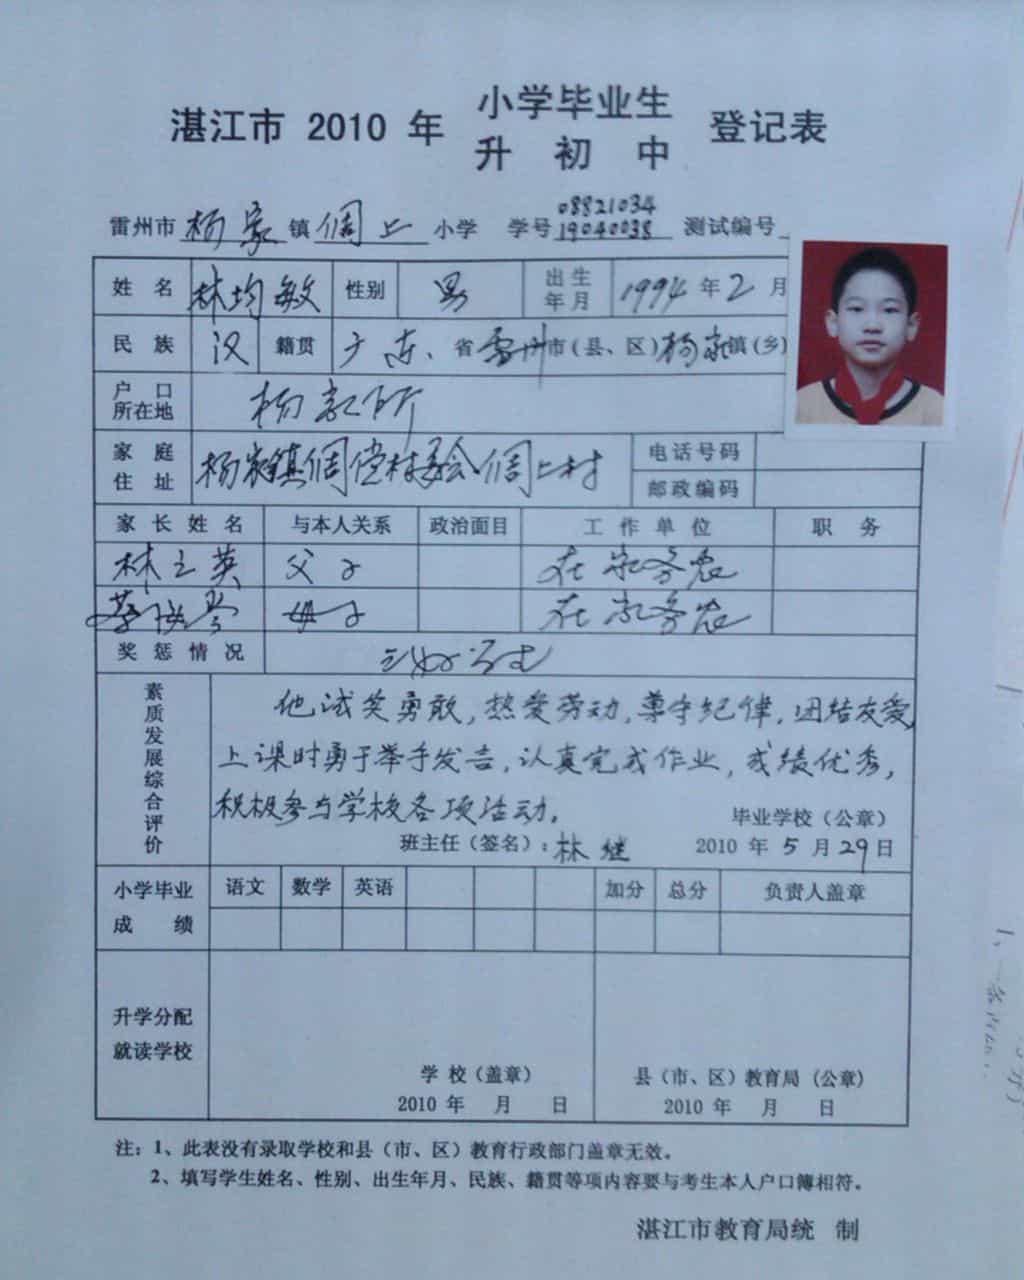 湛江市 2010 年 小学毕业生 登记表
升 初 中
08821034
雷州市 杨家 镇 倜上 小学 学号 19040038 测试编号
姓 名 林均敏 性别 男 出生年月 1994 年 2 月
民 族 汉 籍贯 广东 省 雷州 市(县、区) 杨家 镇(乡)
户 口 所在地 杨家所
家 庭 住 址 杨家镇倜 村委会倜上村 电话号码
邮政编码
家 长 姓 名 与本人关系 政治面目 工 作 单 位 职 务
林之英 父子 在家务农
蔡 母子 在家务农
奖 惩 情 况 三好学生
素质发展综合评价
他诚实勇敢,热爱劳动,尊守纪律,团结友爱
上课时勇于举手发言,认真完成作业,成绩优秀,
积极参与学校各项活动。
毕业学校(公章)
班主任(签名):林继 2010 年 5 月 29 日
小学毕业 成 绩 语文 数学 英语 加分 总分 负责人盖章
升学分配
就读学校
学 校(盖章) 县(市、区)教育局(公章)
2010 年 月 日 2010 年 月 日
注:1、此表没有录取学校和县(市、区)教育行政部门盖章无效。
2、填写学生姓名、性别、出生年月、民族、籍贯等项内容要与考生本人户口簿相符。
湛江市教育局统 制